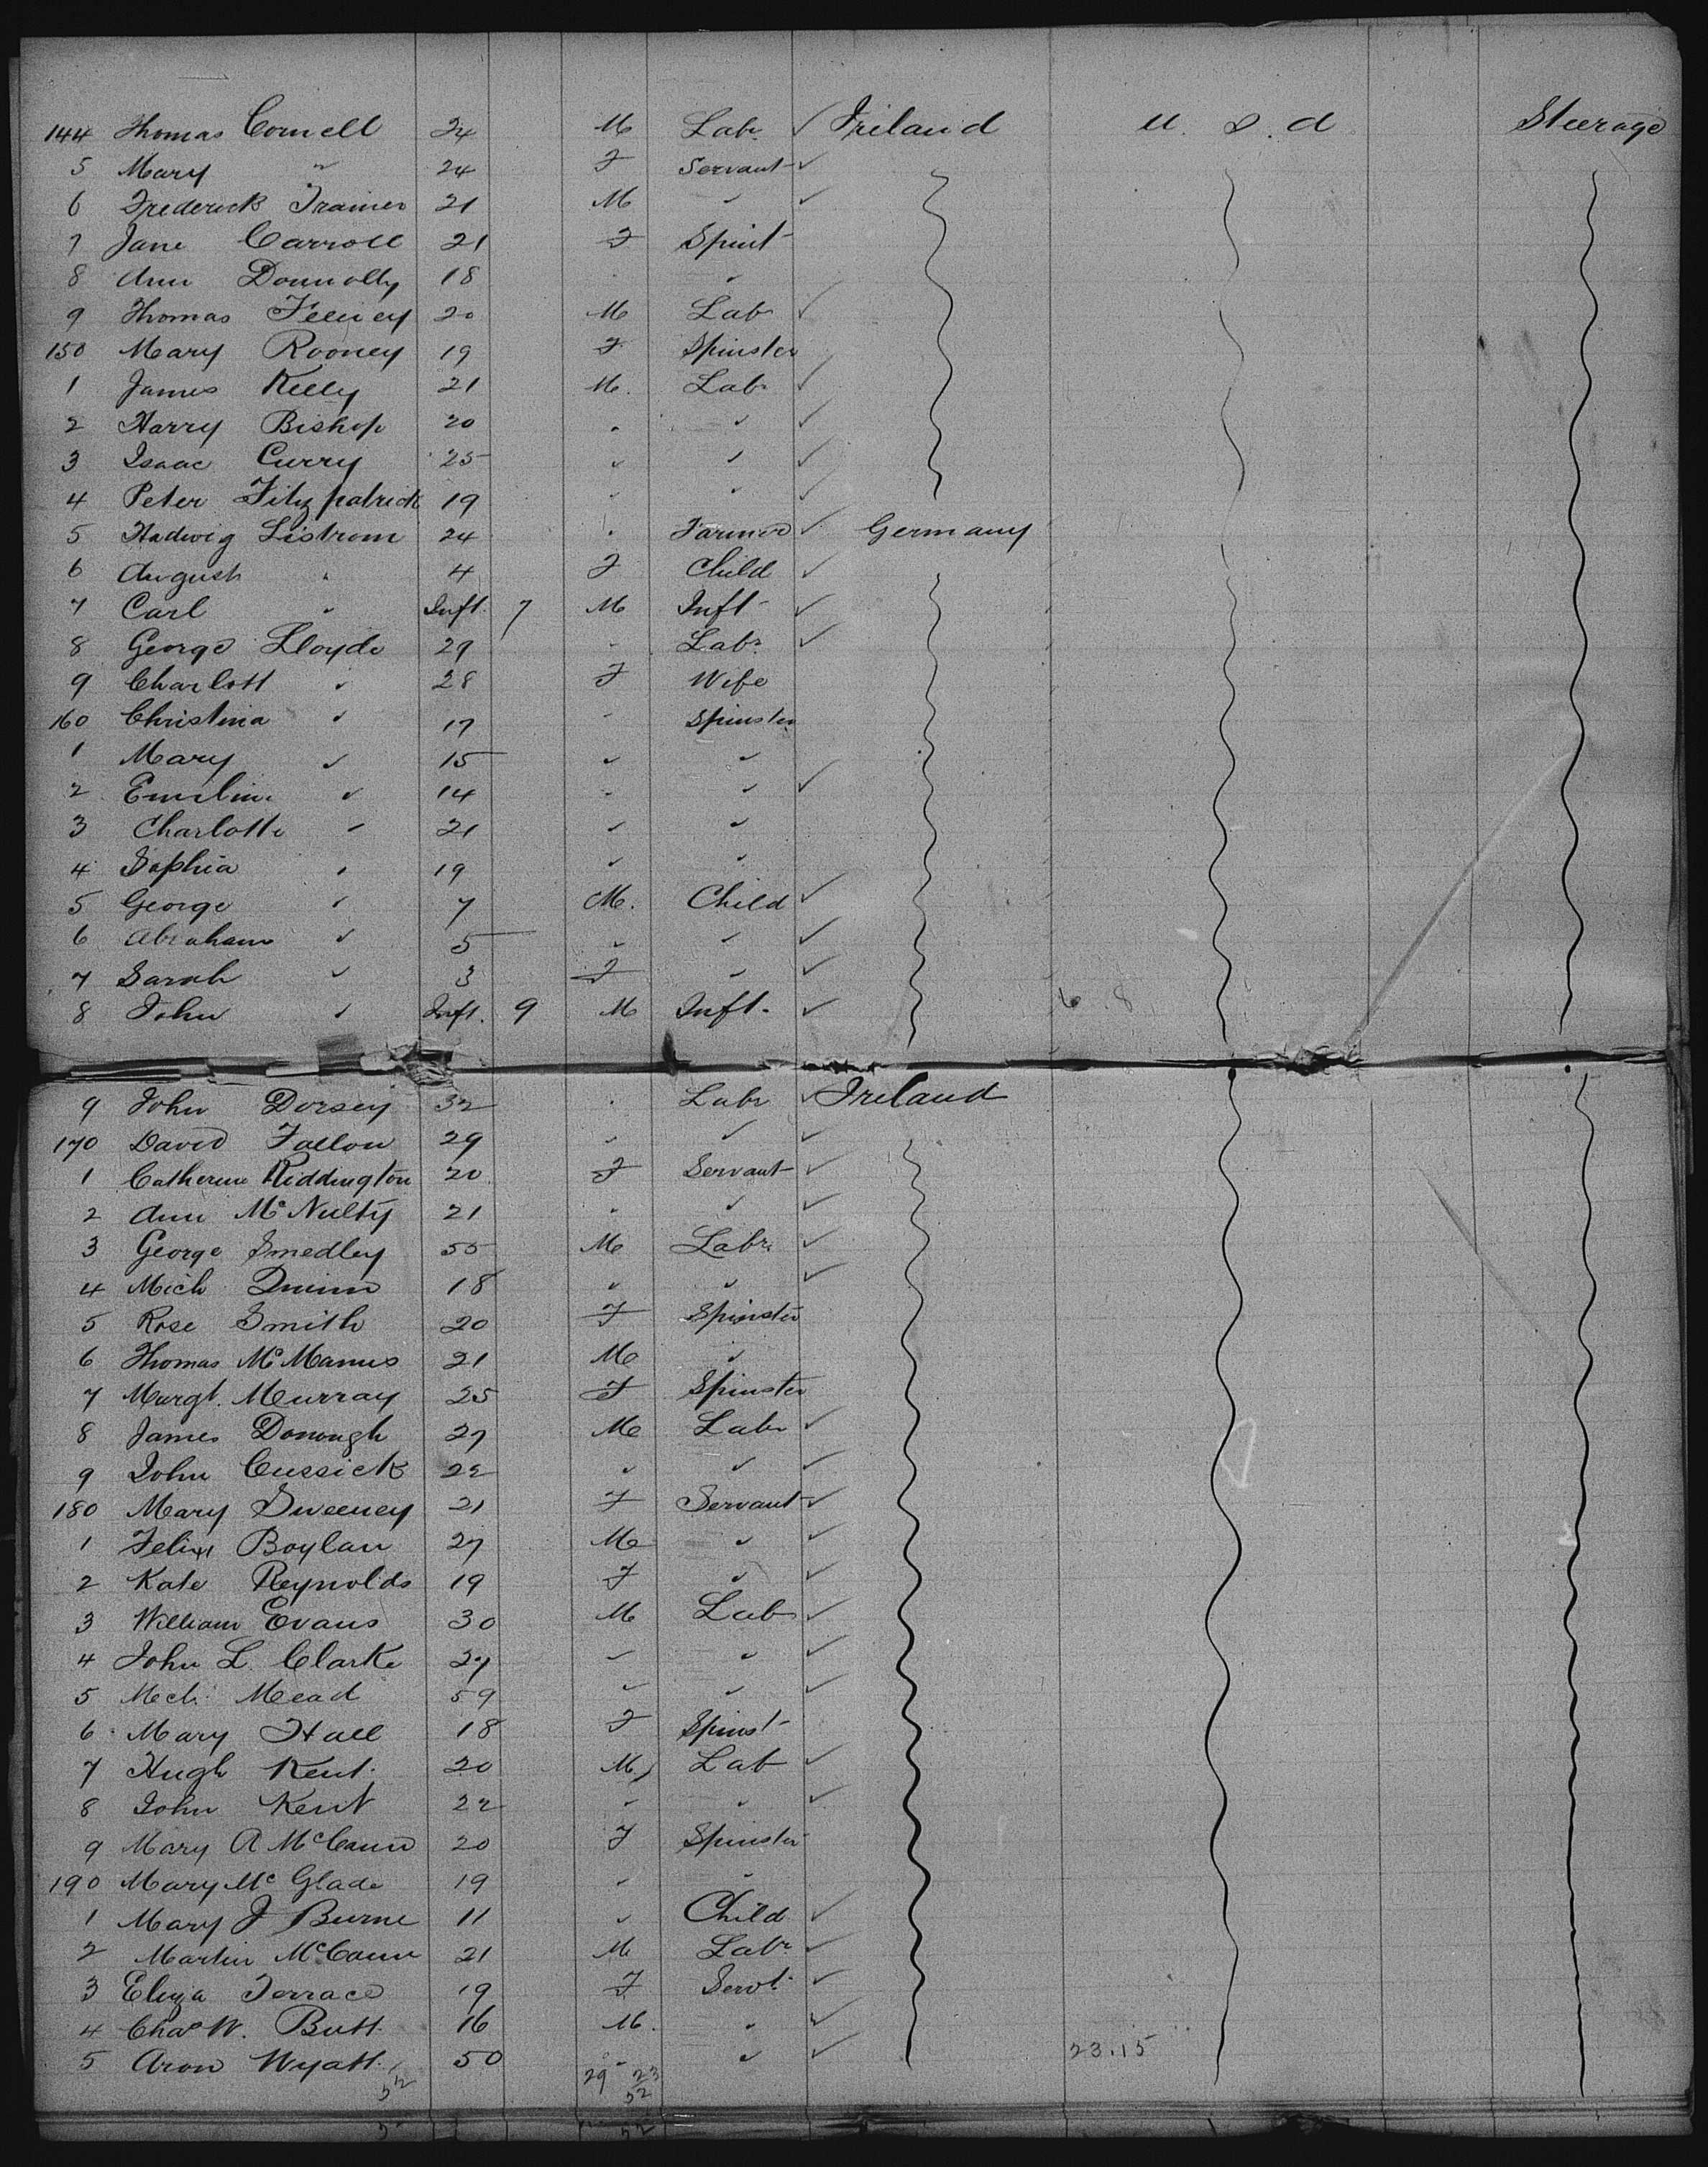 144 Thomas Cornell 24 M Labr ✓ Ireland U. S. A Steerage
5 Mary " 24 F Servant ✓
6 Frederick Trainer 21 M " ✓
7 Jane Carroll 21 F Spint
8 Ann Donnolly 18 " "
9 Thomas Feeney 20 M Labr ✓
150 Mary Rooney 19 F Spinster
1 James Kelly 21 M. Labr ✓
2 Harry Bishop 20 " " ✓
3 Isaac Curry 25 " " ✓
4 Peter Fitzpatrick 19 " " ✓
5 Hadwig Listrom 24 " Farmer ✓ Germany
6 August " 4 F Child ✓
7 Carl " Inft. 7 M Inft ✓
8 George Lloyde 29 " Labr ✓
9 Charlott " 28 F Wife
160 Christina " 17 " Spinster
1 Mary " 15 " "
2 Emilin " 14 " " ✓
3 Charlotte " 21 " "
4 Sophia " 19 " "
5 George " 7 M. Child ✓
6 Abraham " 5 " " ✓
7 Sarah " 3 F " ✓
8 John " Inft. 9 M Inft. ✓ 6 8
9 John Dorsey 32 " Labr ✓ Ireland
170 David Fallon 29 " " ✓
1 Catherine Riddington 20 F Servant ✓
2 Ann McNulty 21 " " ✓
3 George Smedley 55 M Labr. ✓
4 Mich Quinn 18 " " ✓
5 Rose Smith 20 F Spinster
6 Thomas McManus 21 M "
7 Margt. Murray 25 F Spinster
8 James Donough 27 M Labr ✓
9 John Cussick 22 " " ✓
180 Mary Sweeney 21 F Servant ✓
1 Felix Boylan 27 M " ✓
2 Kate Reynolds 19 F " ✓
3 William Evans 30 M Lab ✓
4 John L. Clarke 27 " " ✓
5 Mich. Mead 59 " " ✓
6 Mary Hall 18 F Spinst
7 Hugh Kent. 20 M Lab ✓
8 John Kent 22 " " ✓
9 Mary A McCann 20 F Spinster
190 Mary McGlade 19 " "
1 Mary J Burne 11 " Child ✓
2 Martin McCann 21 M Labr ✓
3 Eliza Terrace 19 F Servt. ✓
4 Chas W. Butt 16 M. " ✓
5 Aron Wyatt 50 " " ✓ 23.15
52 29 23
52
52